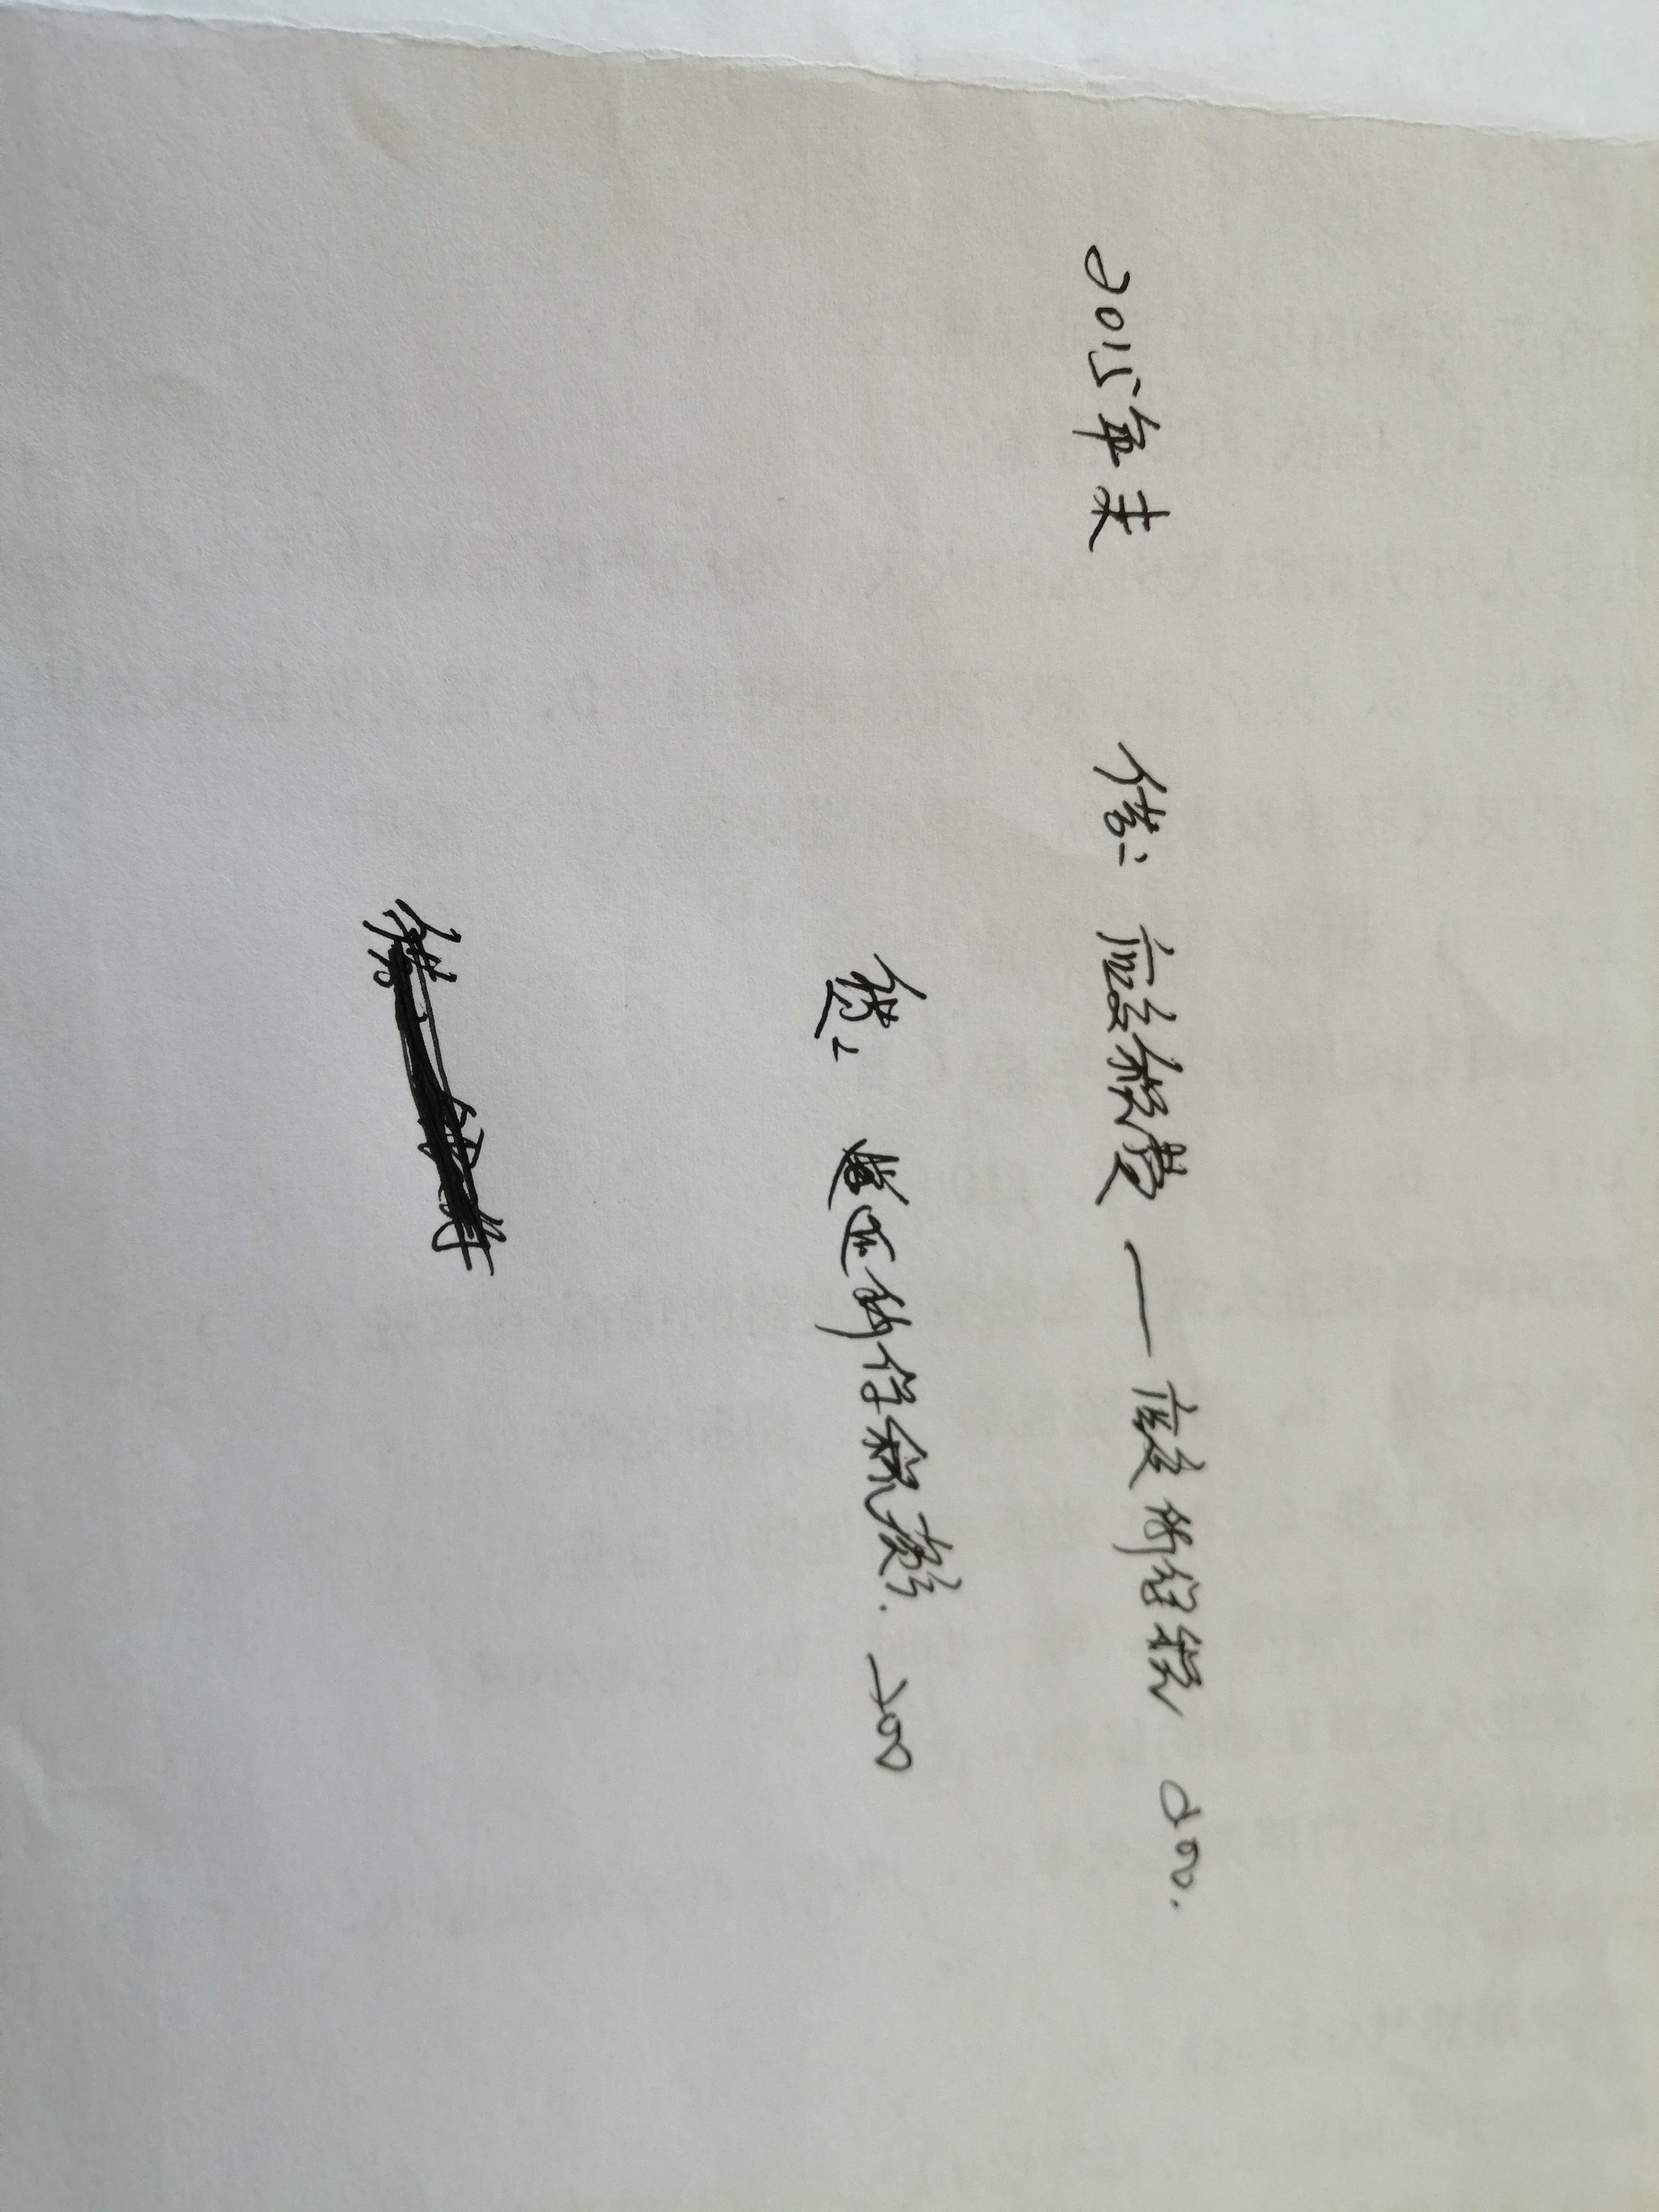 2015年末 借：应交税费——应交所得税 200.
贷：递延所得税资产. 200